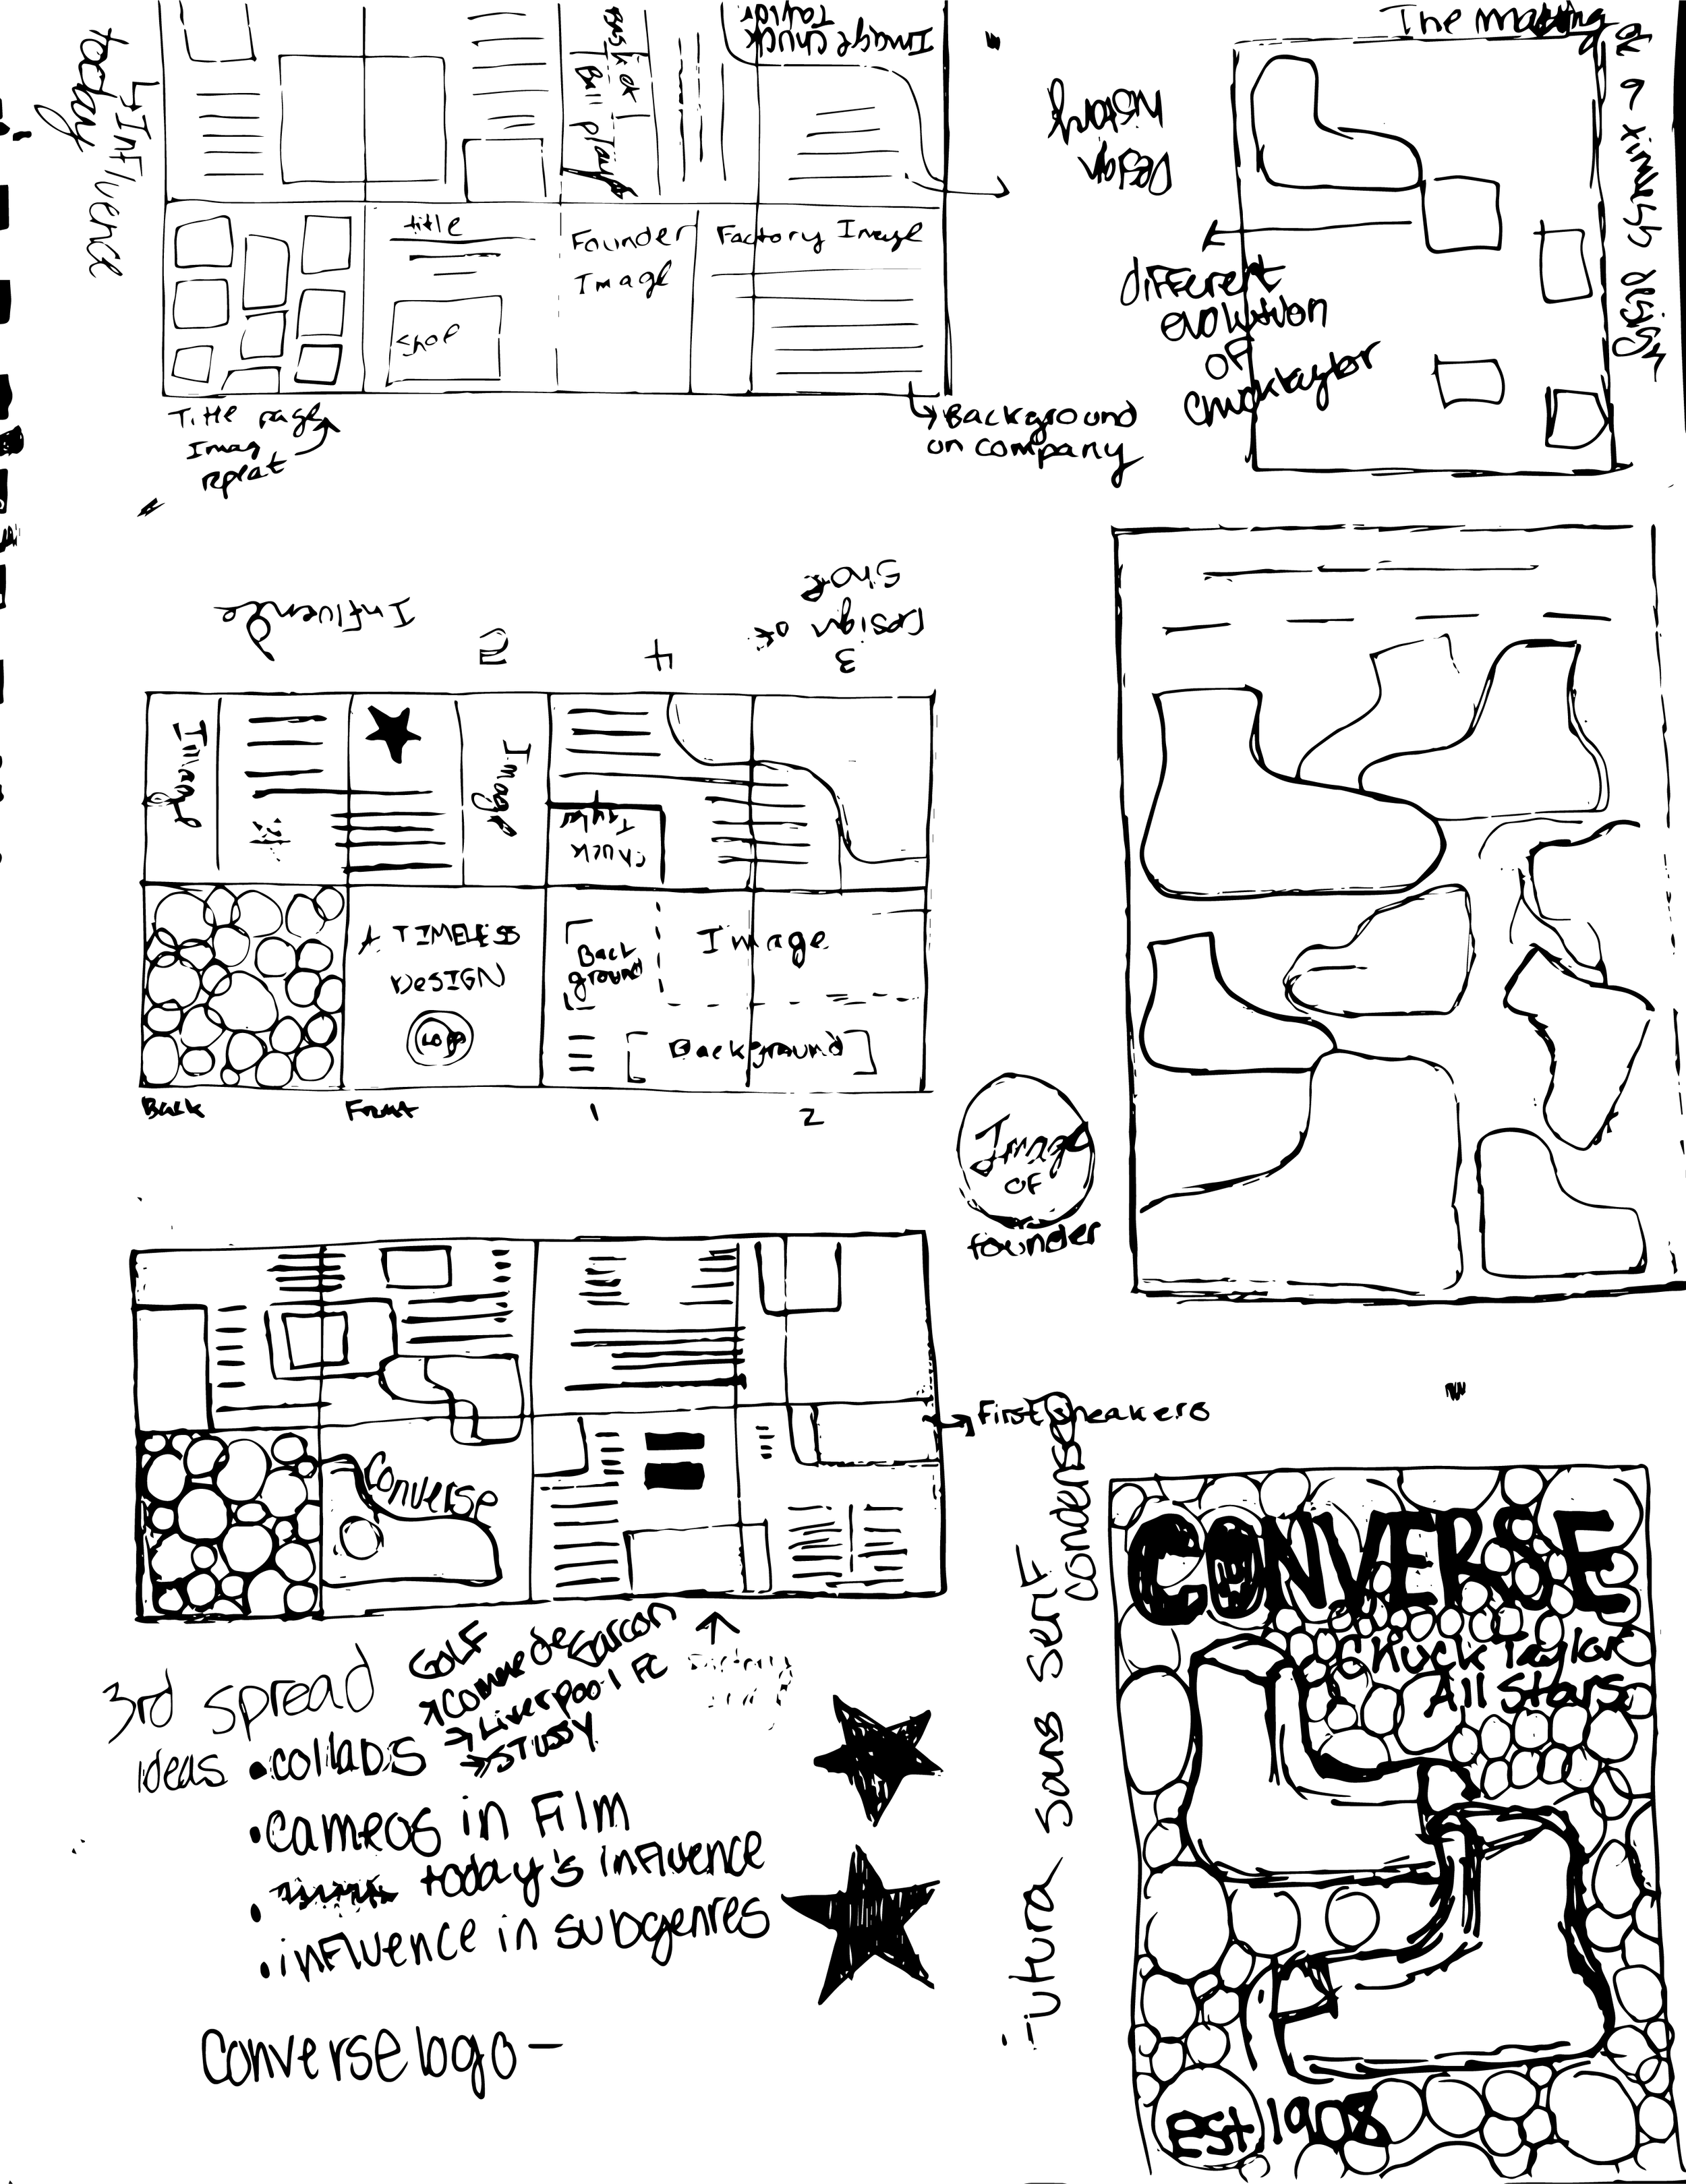 Image Chuck
Taylor
Basket
Ball players
↳ Influence
today
title
Shop
Founder
Image
Factory Image
Title page
Imag
repeat
↳ Background
on company
The making
of a
design
History
Design
different
evolution
of
chucktaylor
Influence
5
4
3
Design of
Shoe
Image
Image
Chuck
Taylor
A TIMELESS
DESIGN
Logo
Back
ground
Image
Background
Back
Front
1
2
Image
OF
founder
Converse
First sneakers
3rd spread
ideas
• collabs
GOLF
→ Comme de Garcon
→ Liverpool FC
→ STUSSY
• cameos in Film
• today's influence
• influence in subgenres
Converse logo —
Futura Sans Serif
condensed
CONVERSE
Chuck Taylor
All Stars
est. 1908